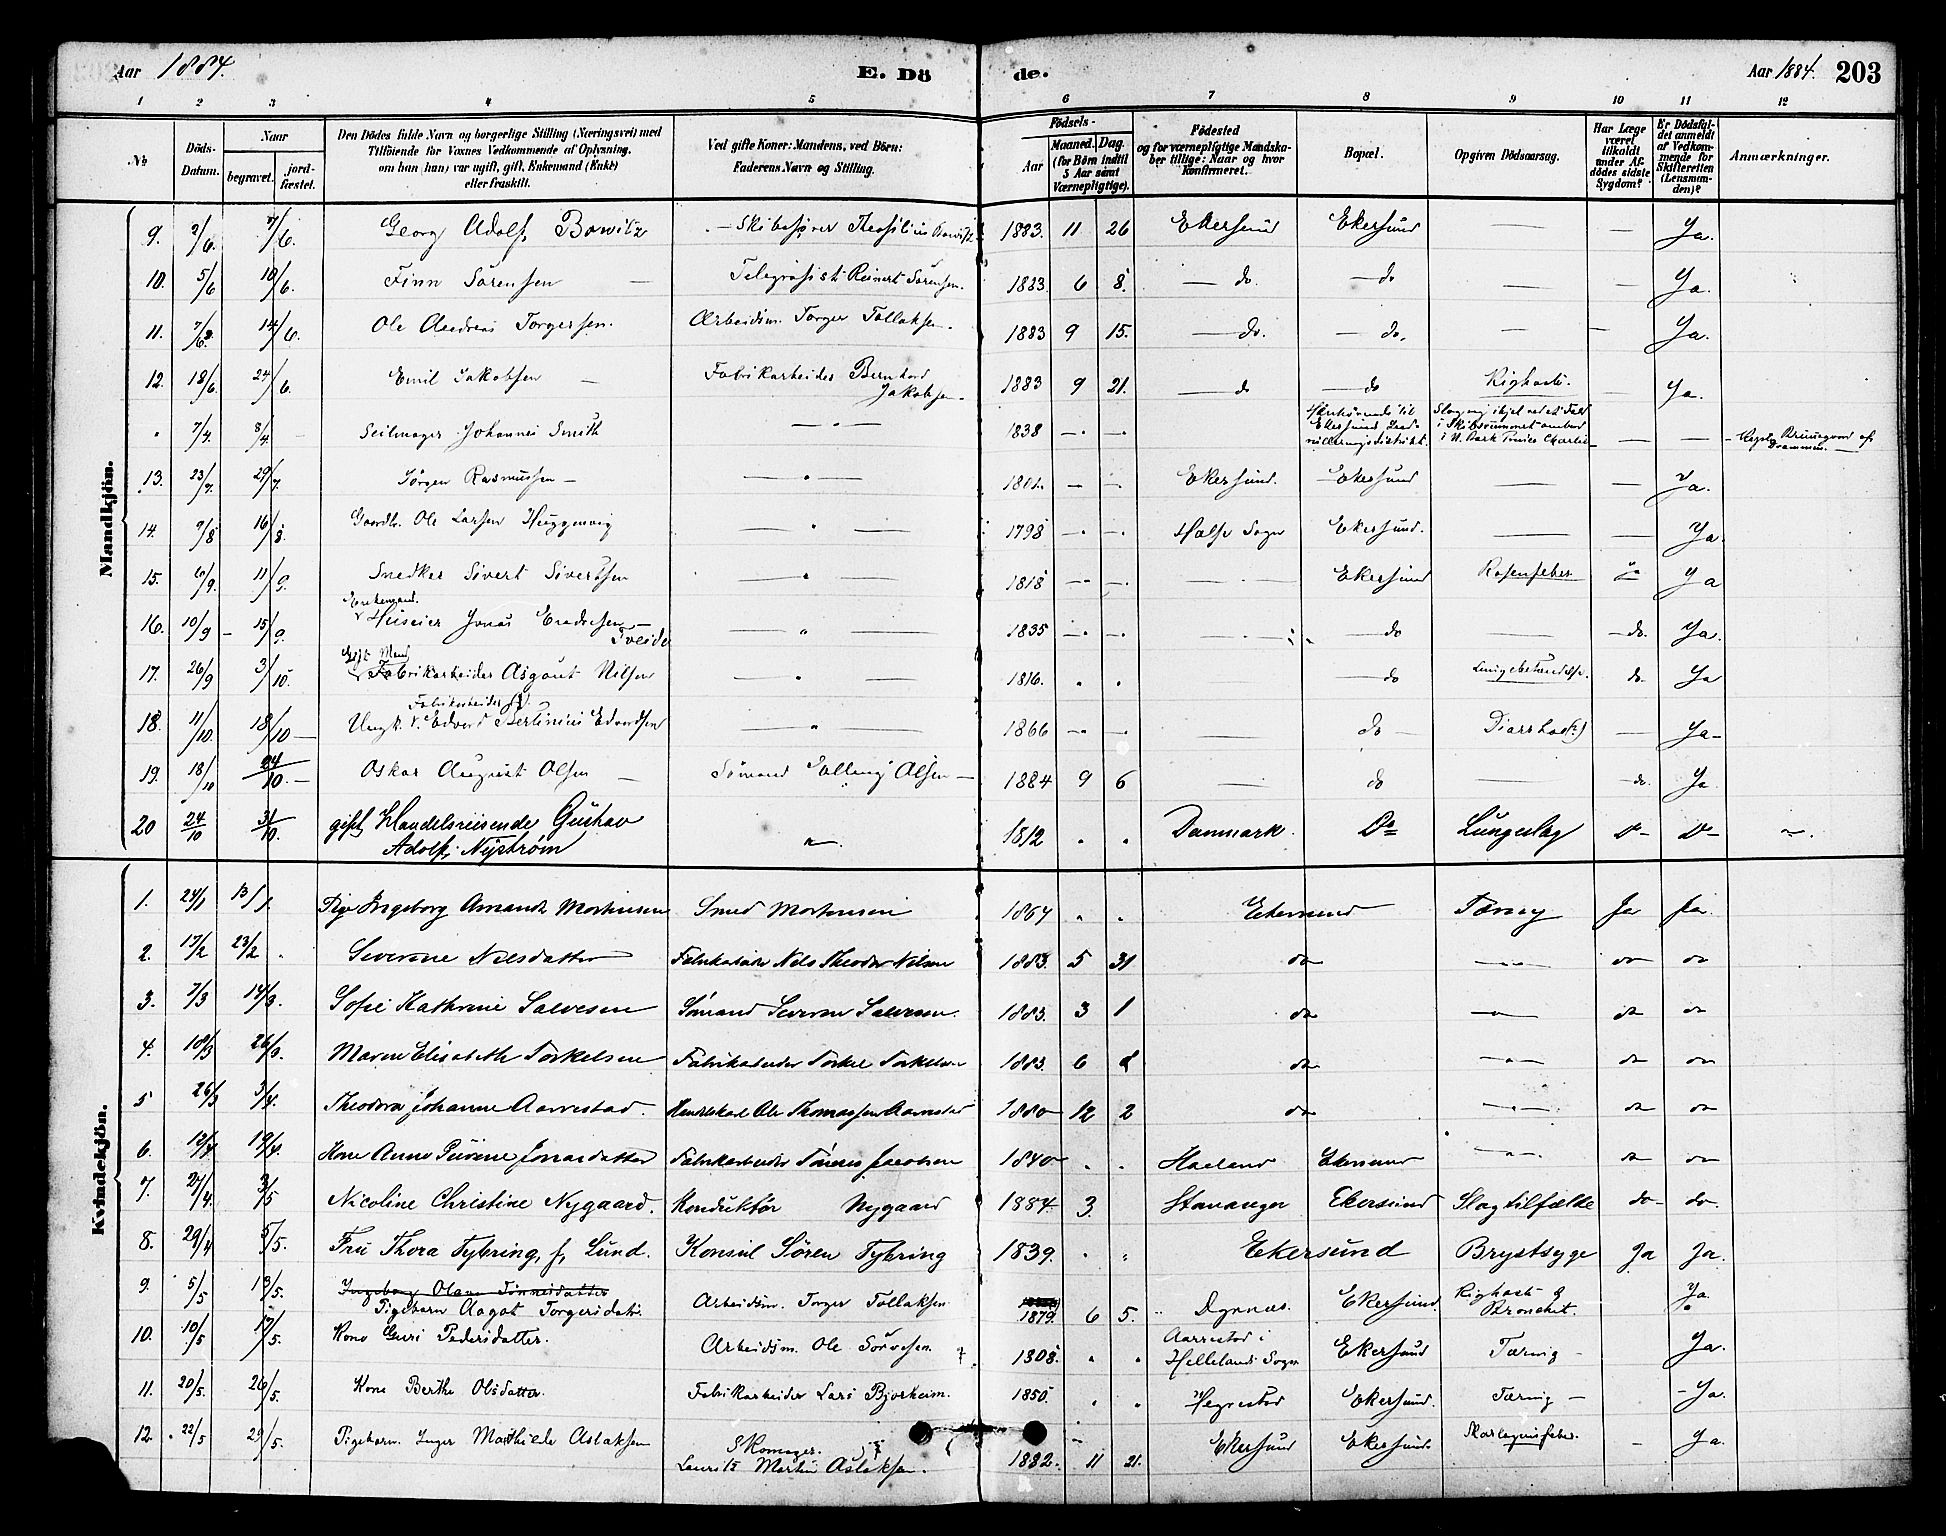 Aar 1884. E. Dö de. Aar 1884. 203
1 2 3 4 5 6 7 8 9 10 11 12
No Döds-Datum. Naar begravet. jordfæstet. Den Dödes fulde Navn og borgerlige Stilling (Næringsvei) med Tilföiende for Voxnes Vedkommende af Oplysning, om han (hun) var ugift, gift, Enkemand (Enke) eller fraskilt. Ved gifte Koner: Mandens, ved Börn: Faderens Navn og Stilling. Födsels- Aar Maaned. Dag. (for Börn indtil 5 Aar samt Værnepligtige). Födested og for værnepligtige Mandskaber tillige: Naar og hvor konfirmeret. Bopæl. Opgiven Dödsaarsag. Har Læge været tilkaldt under Afdödes sidste Sygdom? Er Dödsfaldet anmeldt af Vedkommende for Skifteretten (Lensmanden)? Anmærkninger.
Mandkjön.
9. 2/6. 7/6. Georg Adolf Bowitz Skibsfører Theofilius Bowitz 1883. 11 26 Ekersund Ekersund — — Ja.
10. 5/6 10/6. Finn Sørensen — Telegrafist Reinert Sørensen. 1883. 6 8. — do. — do — — Ja.
11. 14/6. Ole Andreas Torgersen. Arbeidsm. Torger Tollaksen. 1883 9 15. — do. — do. — — Ja.
12. 18/6. 24/6. Emil Jakobsen — Fabrikarbeider Bernhard Jakobsen. 1883 9 21. — do — do Kighoste. Ja.
" 7/4. 8/4. Seilmager Johannes Smith — " — 1838 — — Henhørende til Ekersunds — —
13. 23/7. 29/7. Jørgen Rasmussen — — " — 1801. — — Ekersund. Ekersund — — Ja.
14. 9/8 16/8. Ole Larsen — " — 1798 — — Halse Sogn Ekersund. — — Ja.
15. 6/9. 11/9. Snedker Sivert Sivertsen — " — 1818 — — Ekersund Rosenfeber Ja Ja
16. 10/9 — 15/9. Enkemand. Jonas — " — 1835 — — do — do. Ja.
17. 26/9 3/10. Gift Mand Fabrikarbeider Asgaut Nilsen — " — 1816. " " — do Lungebetændelse. do. Ja
18. 11/10. 18/10 — Fabrikarbeider Ungk. Edvard Bertinius Edvardsen " — 1866 — — — do — Diarrhoe(?) — Ja —
19. 18/10 24/10. — Oskar August Olsen — Sømand Olsen — 1884 9 6 — do — do. Ja
20 24/10 31/10. gift Handelsreisende Gustav Adolf Nystrøm " 1812 " " Danmark. Do Lungeslag Do Do
Kvindekjön.
1. 24/1 Pige Ingeborg Amanda Mortensen Smed Mortensen 1867 " " Ekersund Tæring Ja Ja.
2. 17/2 23/2 Severine Nilsdatter Fabrikarbeider Nels Theodor Nilsen 1883. 5 31 do — do do
3. 7/3 14/3. Sofie Kathrine Salvesen Sømand Severin Salvesen. 1883. 3 1 do — do do
4. 18/3 26/3. Maren Elisabeth Torkelsen Fabrikarbeider Torkel Torkelsen 1883. 6 8 do — do do
5 26/3 3/4. Theodora Johanne Aarrestad. Ole Thomassen Aarrestad 1880 12 2 do — do do
6. 19/4. Kone Anne Jonasdatter Fabrikarbeider Tønnes Jacobsen 1840 " " Haaland Ekersund — do do
7. 27/4. 3/5 Nicoline Christine Nygaard. Konduktør Nygaard 1884. 3. Stavanger Ekersund Slagtilfælde do — do —
8. 29/4 5/5. Fru Thora Tybring, f. Lund. Konsul Søren Tybring 1839. " " Ekersund Brystsyge Ja Ja.
9. 5/5 13/5. Ingeborg Olava Tønnesdatter Pigebarn Aagot Torgersdatter Arbeidsm. Torger Tollaksen 1879. 6 5. Ekersund. Kighoste & Bronchit. Ja.
10. 10/5 17/5. Kone Guri Pedersdatter. Arbeidsm. Ole 1808. " " Aarrestad i Hellelands Sogn Ekersund Tæring — Ja.
11. 20/5. 26/5. Kone Berthe Olsdatter. Fabrikarbeider Lars Bjorheim. 1850. " " Hegrestad Ekersund. Tæring — — Ja.
12. 22/5 29/5. Pigebarn Inger Mathilde Aslaksen Skomager. Laurits Martin Aslaksen. 1882. 11 21. Ekersund Ekersund. Skarlagensfeber. — Ja.